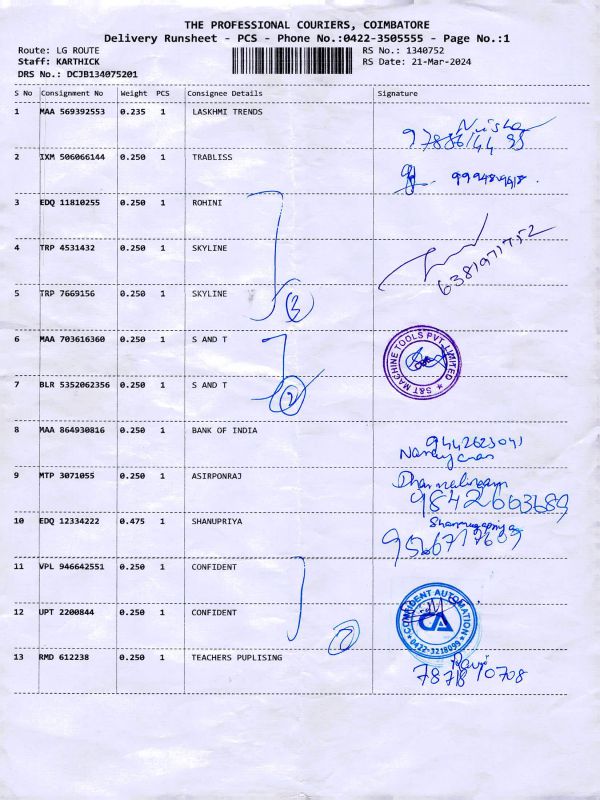 THE PROFESSIONAL COURIERS, COIMBATORE
Delivery Runsheet - PCS - Phone No.:0422-3505555 - Page No.:1
Route: LG ROUTE RS No.: 1340752
Staff: KARTHICK RS Date: 21-Mar-2024
DRS No.: DCJB134075201
S No Consignment No Weight PCS Consignee Details Signature
1 MAA 569392553 0.235 1 LASKHMI TRENDS
2 IXM 506066144 0.250 1 TRABLISS
3 EDQ 11810255 0.250 1 ROHINI
4 TRP 4531432 0.250 1 SKYLINE 6381971752
5 TRP 7669156 0.250 1 SKYLINE 3
6 MAA 703616360 0.250 1 S AND T S&T MACHINE TOOLS PVT LIMITED
7 BLR 5352062356 0.250 1 S AND T 2
8 MAA 864930816 0.250 1 BANK OF INDIA
9 MTP 3071055 0.250 1 ASIRPONRAJ 9842663689
10 EDQ 12334222 0.475 1 SHANUPRIYA
11 VPL 946642551 0.250 1 CONFIDENT
12 UPT 2200844 0.250 1 CONFIDENT 2 CONFIDENT AUTOMATION CA 0422-3218099
13 RMD 612238 0.250 1 TEACHERS PUPLISING